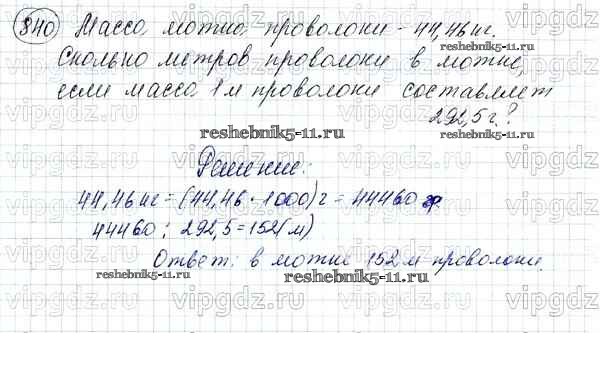 840 Масса мотка проволоки - 44,46 кг.
Сколько метров проволоки в мотке,
если масса 1 м проволоки составляет
292,5 г.?
reshebnik5-11.ru
reshebnik5-11.ru
Решение:
44,46 кг = (44,46 · 1000) г = 44460 гр.
44460 : 292,5 = 152 (м)
reshebnik5-11.ru
reshebnik5-11.ru
Ответ: в мотке 152 м проволоки.
vipgdz.ru vipgdz.ru vipgdz.ru